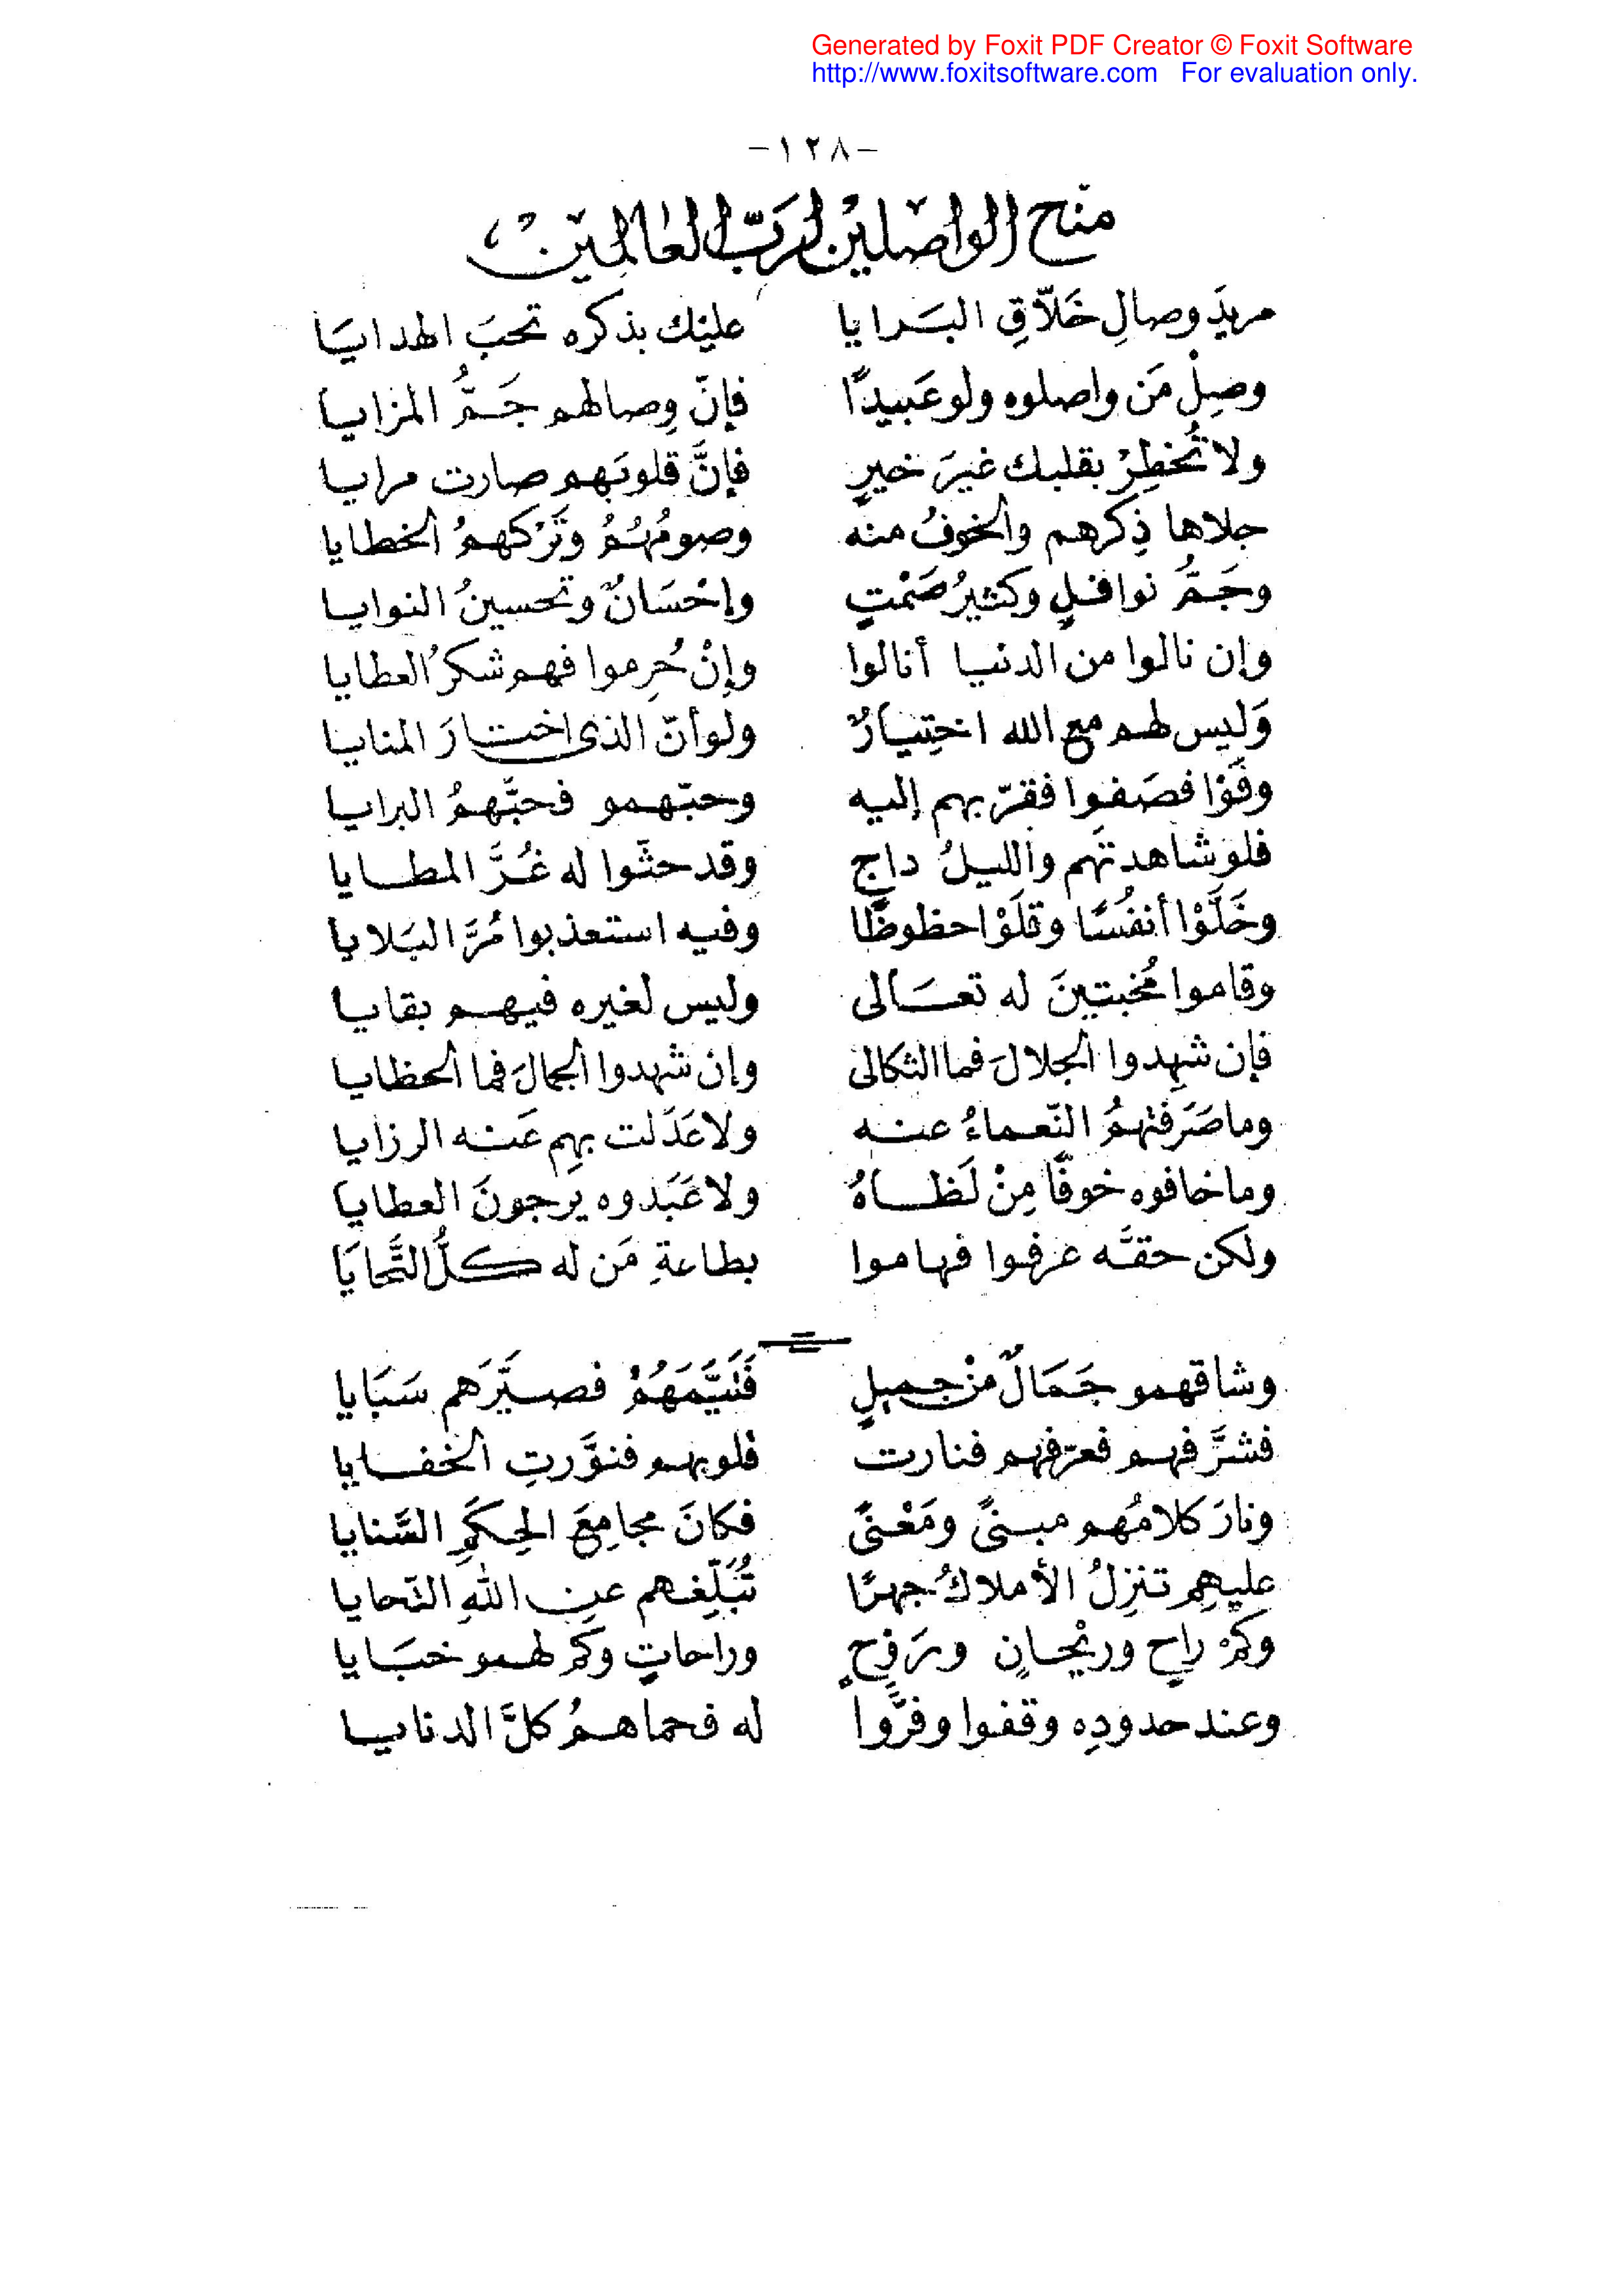 Generated by Foxit PDF Creator © Foxit Software
http://www.foxitsoftware.com For evaluation only.
-١٢٨-
منح الواصلين لربّ العالمين
مريدَ وصالِ خَلّاقِ البَرايا عليْك بذكره تحبَ الهدايَا
وصِلْ مَن واصلوه ولو عَبيدًا فإنّ وِصالهم جَمُّ المزايا
ولا تُخطِرْ بقلبك غيرَ خيرٍ فإنَّ قلوبَهم صارت مرايا
جلاها ذِكرهم والخوفُ منه وصومُهُمُ وتَرْكهمُ الخطايا
وجَمُّ نوافلٍ وكثيرُ صَمْتٍ وإحْسَانٌ وتحسينُ النوايا
وإن نالوا من الدنيا أنالوا وإنْ حُرِموا فهم شكرُ العطايا
وَليس لهم مع الله اختِيارٌ ولو أنّ الذى اختارَ المنايا
وفَوْا فصَفوا فقرّبهم إليه وحبّهمو فحبَّهمُ البرايا
فلو شاهدتَهم والليلُ داجٍ وقد حثّوا له غُرَّ المطايا
وخَلَّوْا أنفُسًا وقلَوْا حظوظًا وفيه استعذبوا مُرَّ البَلايا
وقاموا مُخبتينَ له تعَالى وليس لغيره فيهم بقايا
فإن شهِدوا الجلالَ فما الثكالى وإن شهدوا الجمالَ فما الحظايا
وما صَرَفتهمُ النّعماءُ عنه ولا عَدَلت بهِم عَنه الرزايا
وما خافوه خوفًا مِنْ لَظاهُ ولا عَبَدوه يرجونَ العطايا
ولكن حقَّه عرفوا فهاموا بطاعةِ مَن له كلُّ التَّحايَا
وشاقهمو جَمَالٌ مِنْ جميلٍ فَتَيَّمَهُمْ فصيَّرَهم سَبَايا
فشرَّفهم فعرّفهم فنارت قلوبهمو فنوَّرتِ الخفايا
ونارَ كلامُهم مبنىً ومَعْنىً فكانَ مجامِعَ الحِكَمِ السَّنايا
عليهِم تنزِلُ الأملاكُ جهرًا تُبَلِّغهم عنِ اللهِ التّحايا
وكمْ راحٍ وريْحانٍ ورَوْحٍ وراحاتٍ وكم لهمو خبَايا
وعند حدودِه وقفوا وفرُّوا له فحماهمُ كلَّ الدنايا